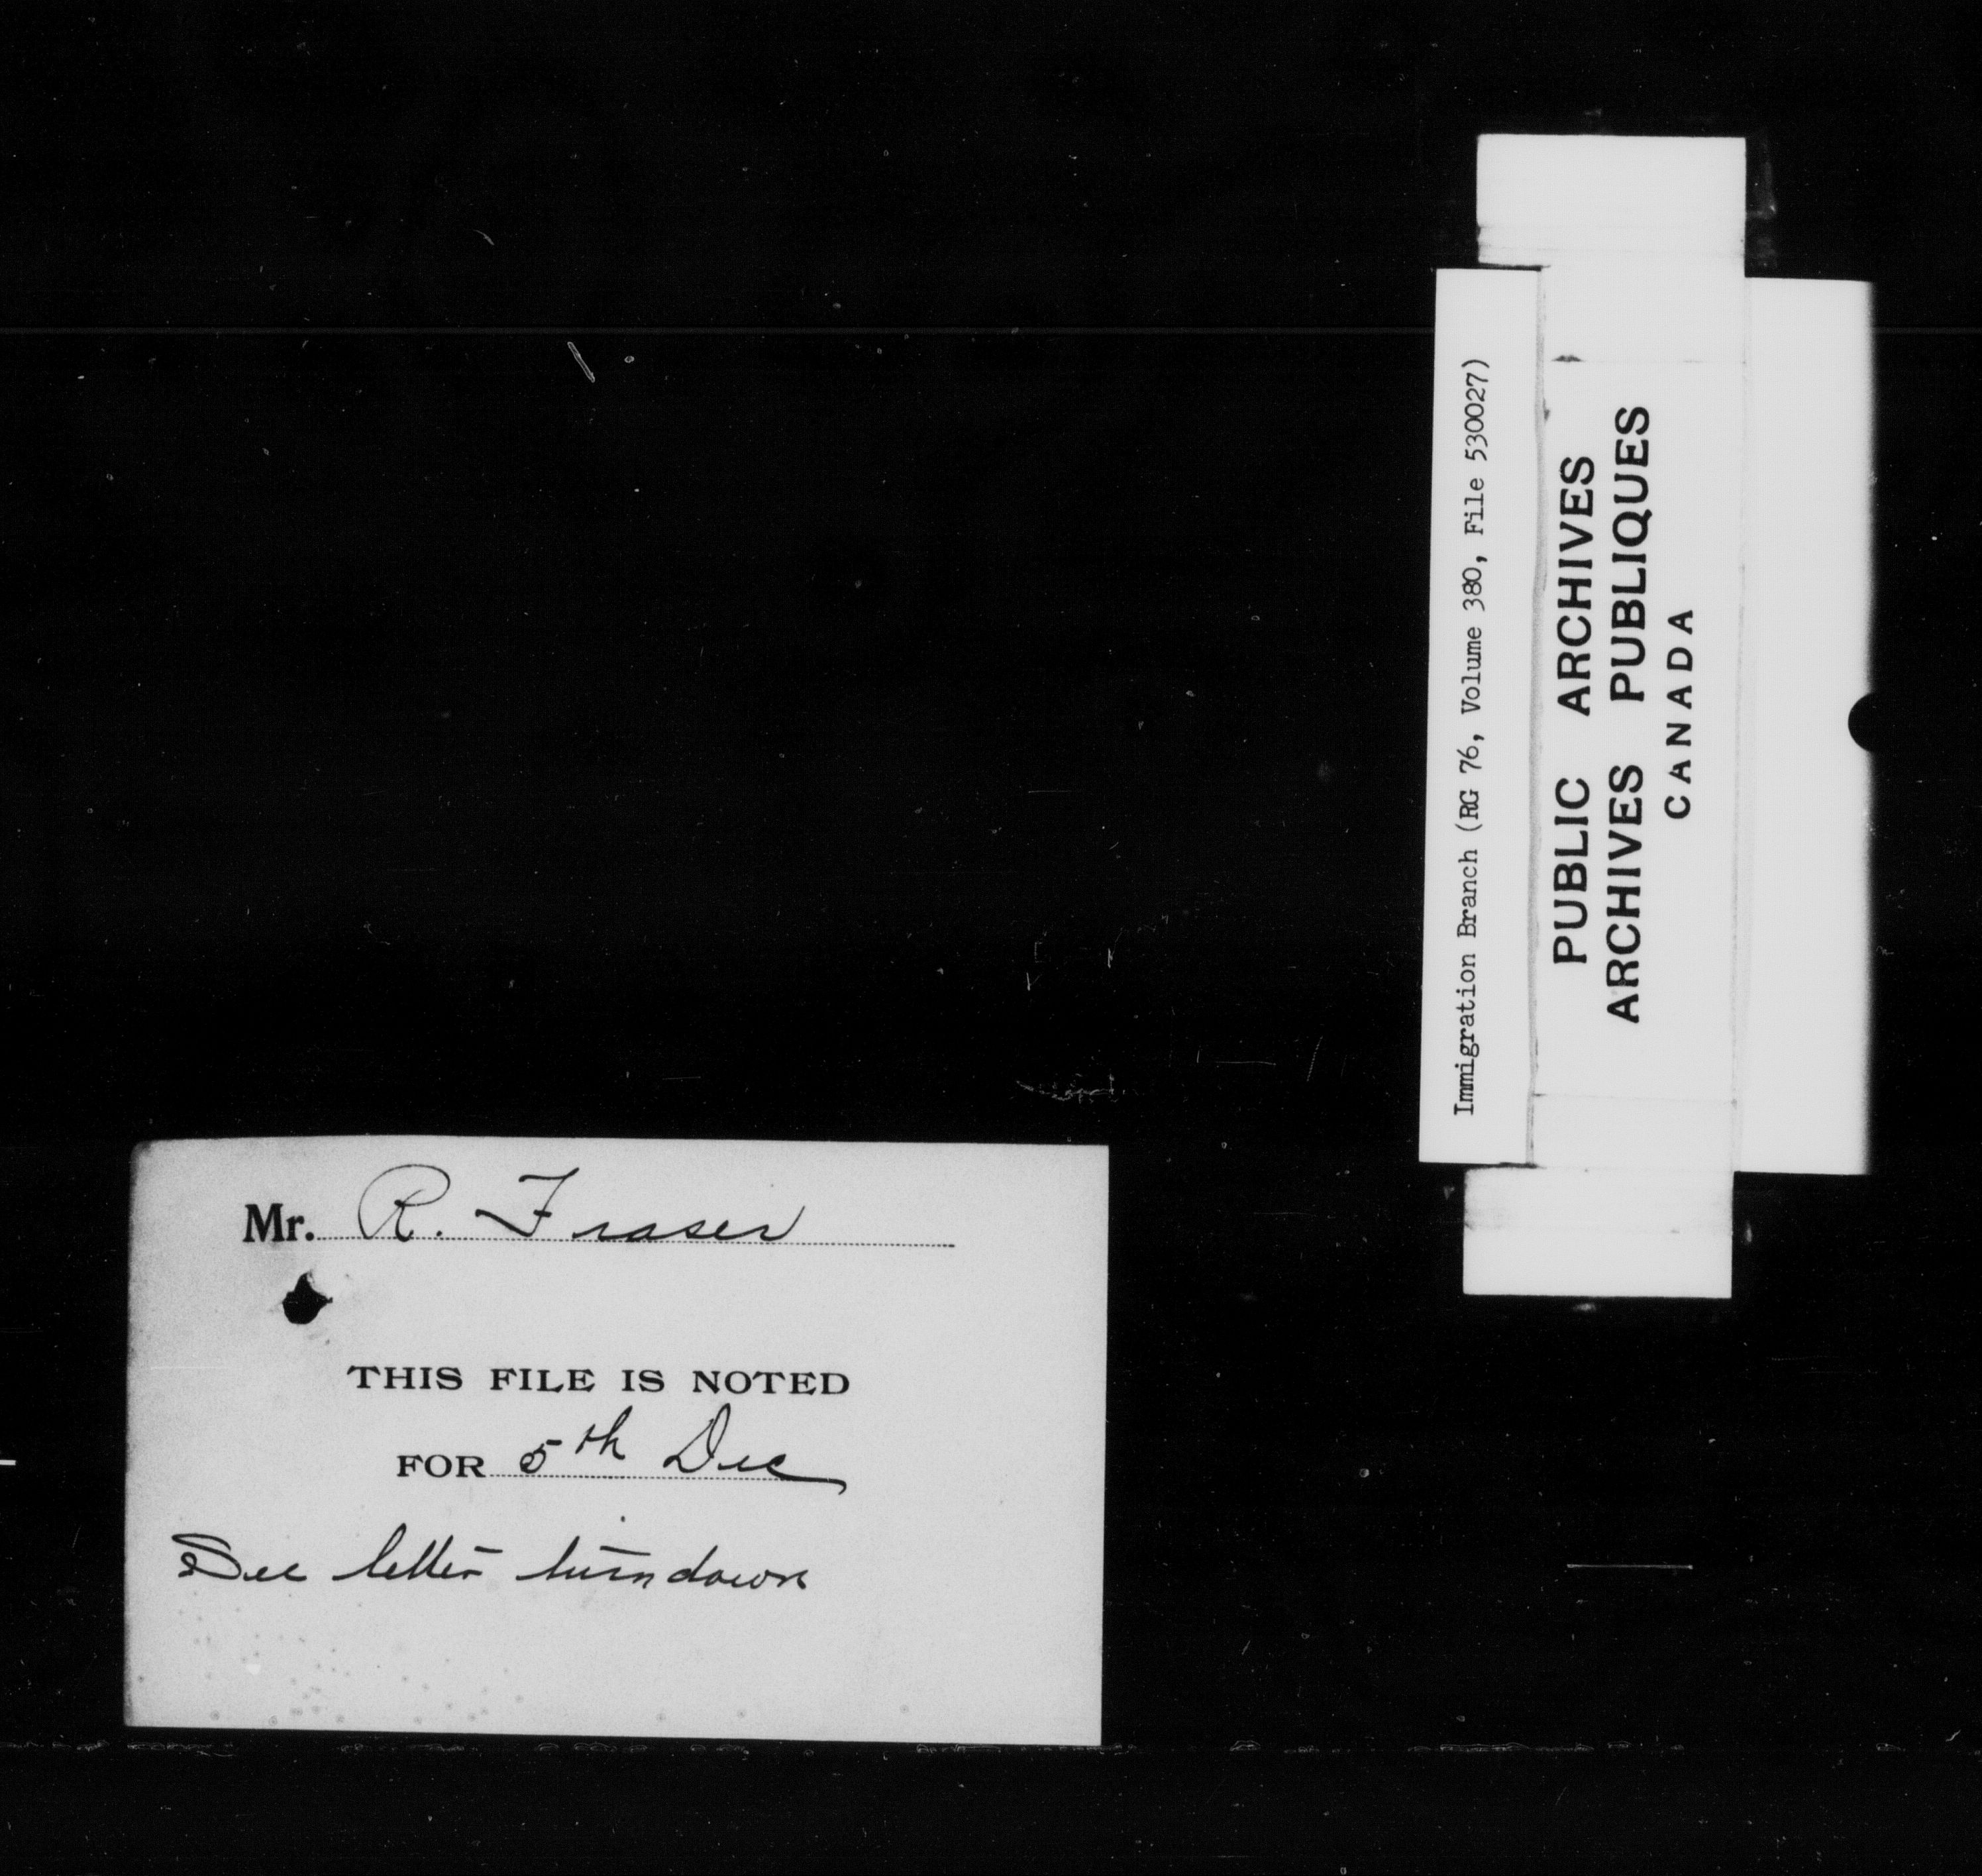 Immigration Branch (RG 76, Volume 380, File 530027)
PUBLIC ARCHIVES
ARCHIVES PUBLIQUES
CANADA
Mr. R. Fraser
THIS FILE IS NOTED
FOR 5th Dec
See letter turndown